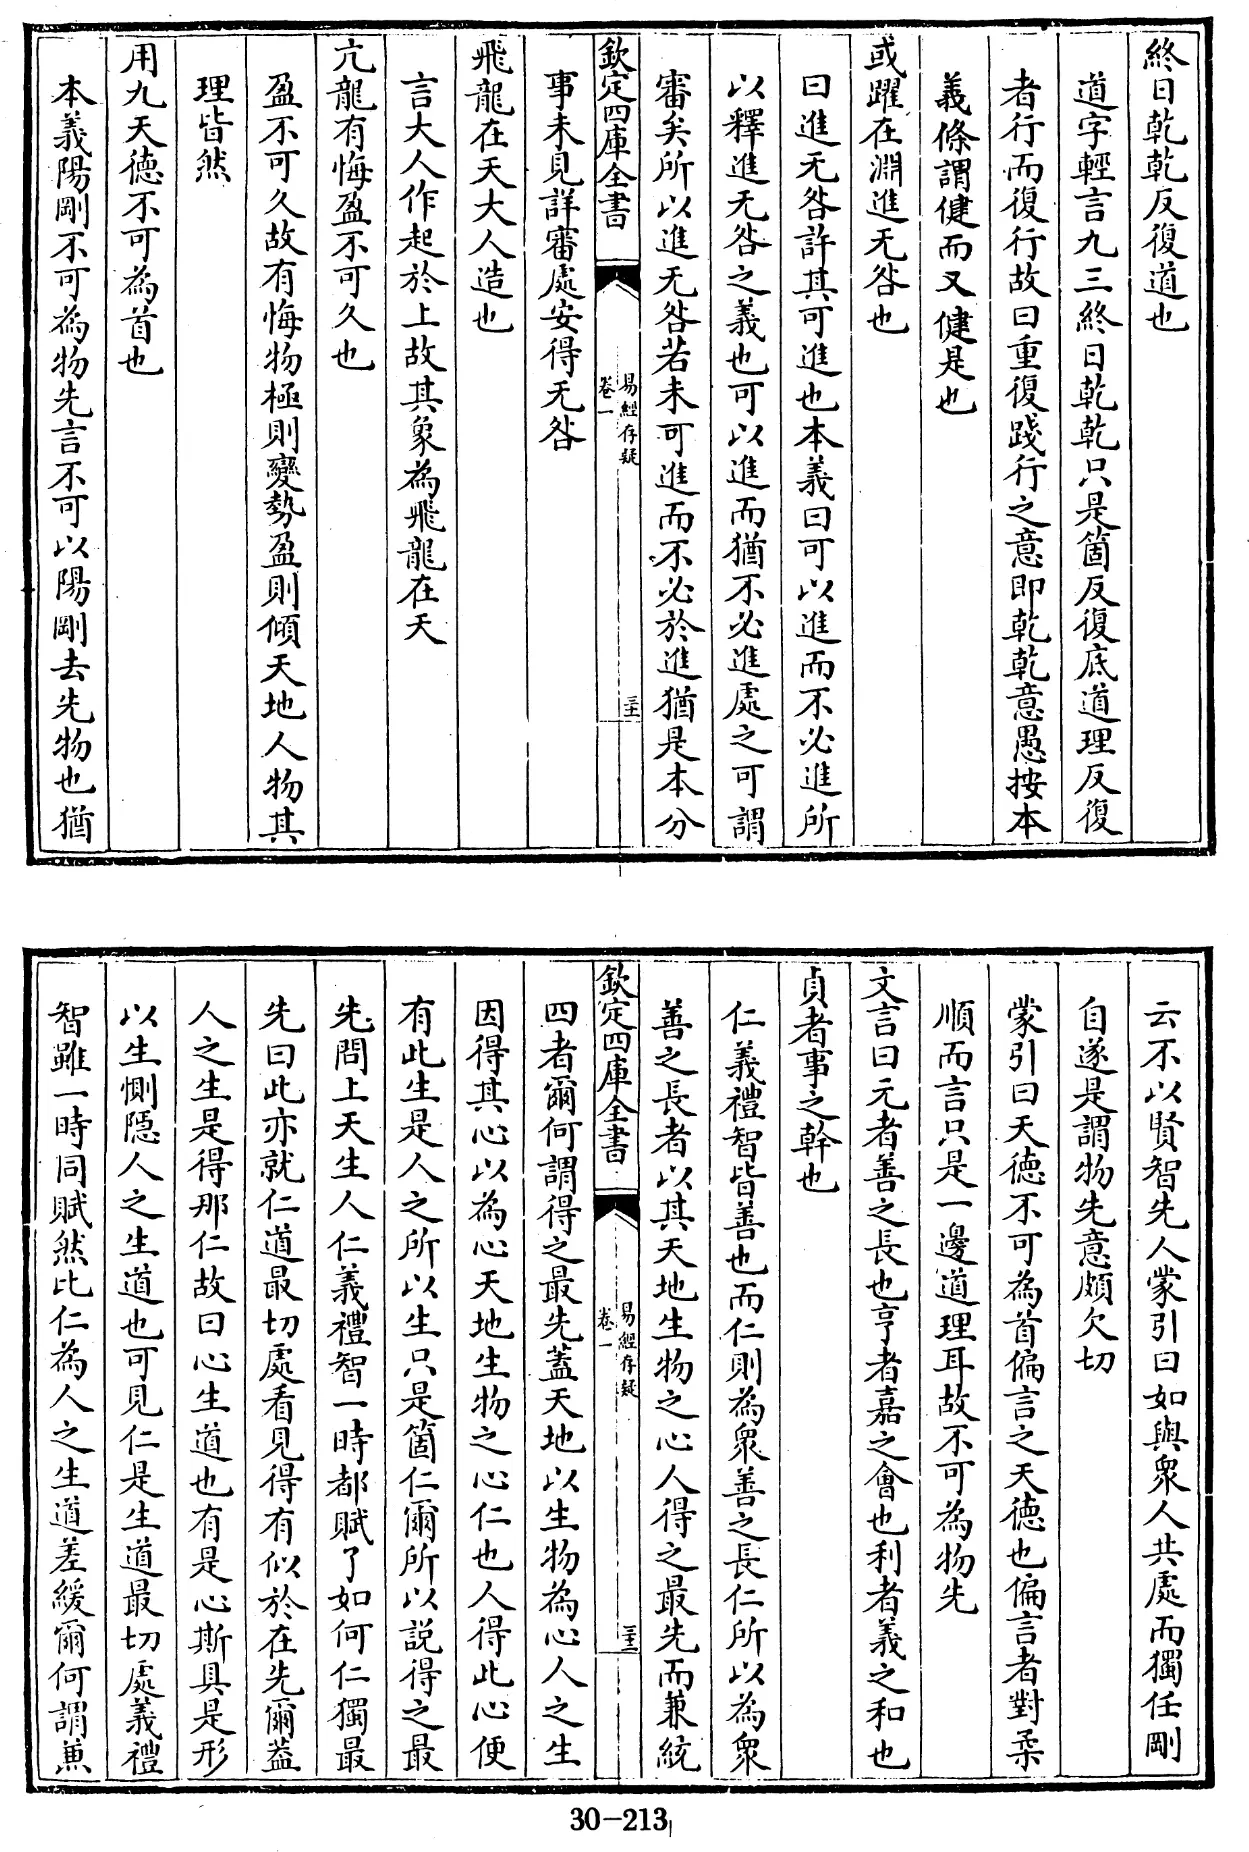 終日乾乾反復道也
道字輕言九三終日乾乾只是箇反復底道理反復
者行而復行故曰重復踐行之意即乾乾意愚按本
義條謂健而又健是也
或躍在淵進无咎也
曰進无咎許其可進也本義曰可以進而不必進所
以釋進无咎之義也可以進而猶不必進處之可謂
審矣所以進无咎若未可進而不必於進猶是本分
欽定四庫全書
易經存疑
卷一
三十
事未見詳審處安得无咎
飛龍在天大人造也
言大人作起於上故其象為飛龍在天
亢龍有悔盈不可久也
盈不可久故有悔物極則變勢盈則傾天地人物其
理皆然
用九天德不可為首也
本義陽剛不可為物先言不可以陽剛去先物也猶
云不以賢智先人蒙引曰如與衆人共處而獨任剛
自遂是謂物先意頗欠切
蒙引曰天德不可為首偏言之天德也偏言者對柔
順而言只是一邊道理耳故不可為物先
文言曰元者善之長也亨者嘉之會也利者義之和也
貞者事之幹也
仁義禮智皆善也而仁則為衆善之長仁所以為衆
善之長者以其天地生物之心人得之最先而兼統
欽定四庫全書
易經存疑
卷一
四者爾何謂得之最先蓋天地以生物為心人之生
因得其心以為心天地生物之心仁也人得此心便
有此生是人之所以生只是箇仁爾所以説得之最
先問上天生人仁義禮智一時都賦了如何仁獨最
先曰此亦就仁道最切處看見得有似於在先爾蓋
人之生是得那仁故曰心生道也有是心斯具是形
以生惻隱人之生道也可見仁是生道最切處義禮
智雖一時同賦然比仁為人之生道差緩爾何謂兼
30-213